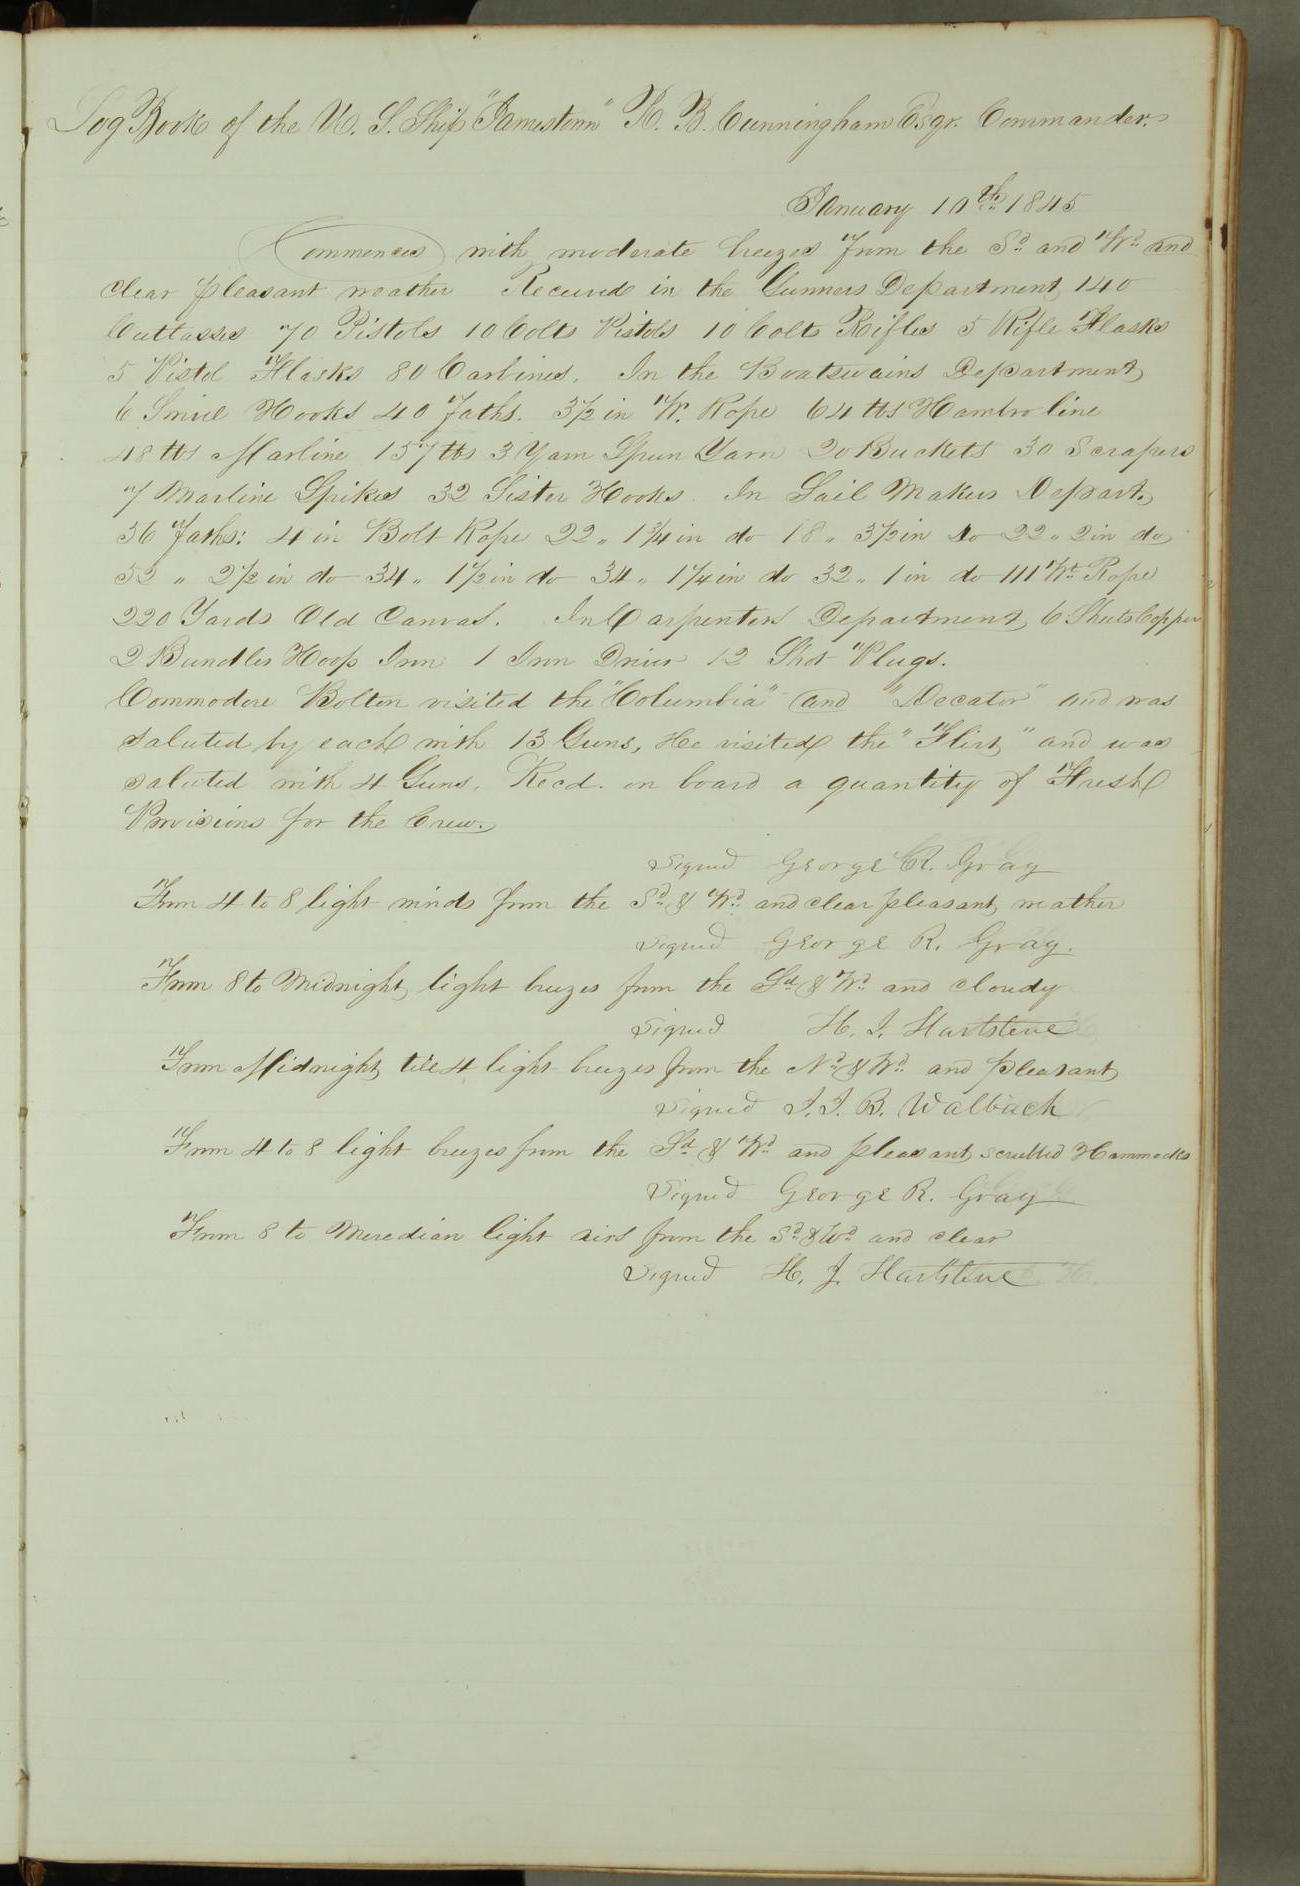 Log Book of the U. S. Ship "Jamestown" R. B. Cunningham Esqr. Commander.
January 10th 1845
Commences with moderate breezes from the Sd and Wd and
clear pleasant weather Received in the Gunners Department 140
Cutlasses 70 Pistols 10 Colts Pistols 10 Colts Rifles 5 Rifle Flasks
5 Pistol Flasks 80 Carbines. In the Boatswains Department
6 Hooks 40 Faths. 3½ in W. Rope 64 lbs Hambroline
48 lbs Marline 157 lbs 3 Yarn Spun Yarn 20 Buckets 30 Scrapers
7 Marline Spikes 32 Sister Hooks. In Sail Makers Depart.
36 Faths: 4 in Bolt Rope 22 „ 1¾ in do 18 „ 3½ in do 22 „ 2 in do
52 „ 2½ in do 34 „ 1½ in do 34 „ 1¼ in do 32 „ 1 in do 111 Wt Rope
220 Yards Old Canvas. In Carpenters Department 6 Sheets Copper
2 Bundles Hoop Iron 1 Iron Driver 12 Shot Plugs.
Commodore Bolton visited the "Columbia" and "Decator" and was
saluted by each with 13 Guns, He visited the "Flirt" and was
saluted with 4 Guns. Recd. on board a quantity of Fresh
Provisions for the Crew.
Signed George R. Gray
From 4 to 8 light winds from the Sd & Wd and clear pleasant weather
Signed George R. Gray.
From 8 to Midnight light breezes from the Sd & Wd and cloudy
Signed H. J. Hartstene
From Midnight till 4 light breezes from the Nd & Wd and pleasant
Signed J. J. B. Walbach
From 4 to 8 light breezes from the Sd & Wd and pleasant scrubbed Hammocks
Signed George R. Gray
From 8 to Meredian light airs from the Sd & Wd and clear
Signed H. J. Hartstene